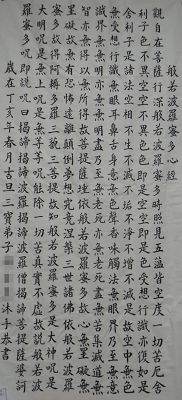 般若波羅蜜多心經
觀自在菩薩行深般若波羅蜜多時照見五蘊皆空度一切苦厄舍
利子色不異空空不異色色即是空空即是色受想行識亦復如是
舍利子是諸法空相不生不滅不垢不淨不增不減是故空中無色
無受想行識無眼耳鼻舌身意無色聲香味觸法無眼界乃至無意
識界無無明亦無無明盡乃至無老死亦無老死盡無苦集滅道無
智亦無得以無所得故菩提薩埵依般若波羅蜜多故心無罣礙無
罣礙故無有恐怖遠離顛倒夢想究竟涅槃三世諸佛依般若波羅
蜜多故得阿耨多羅三藐三菩提故知般若波羅蜜多是大神呪是
大明呪是無上呪是無等等呪能除一切苦真實不虛故說般若波
羅蜜多呪即說呪曰揭諦揭諦波羅揭諦波羅僧揭諦菩提薩婆訶
歲在丁亥年春月吉旦三寶弟子 沐手恭書